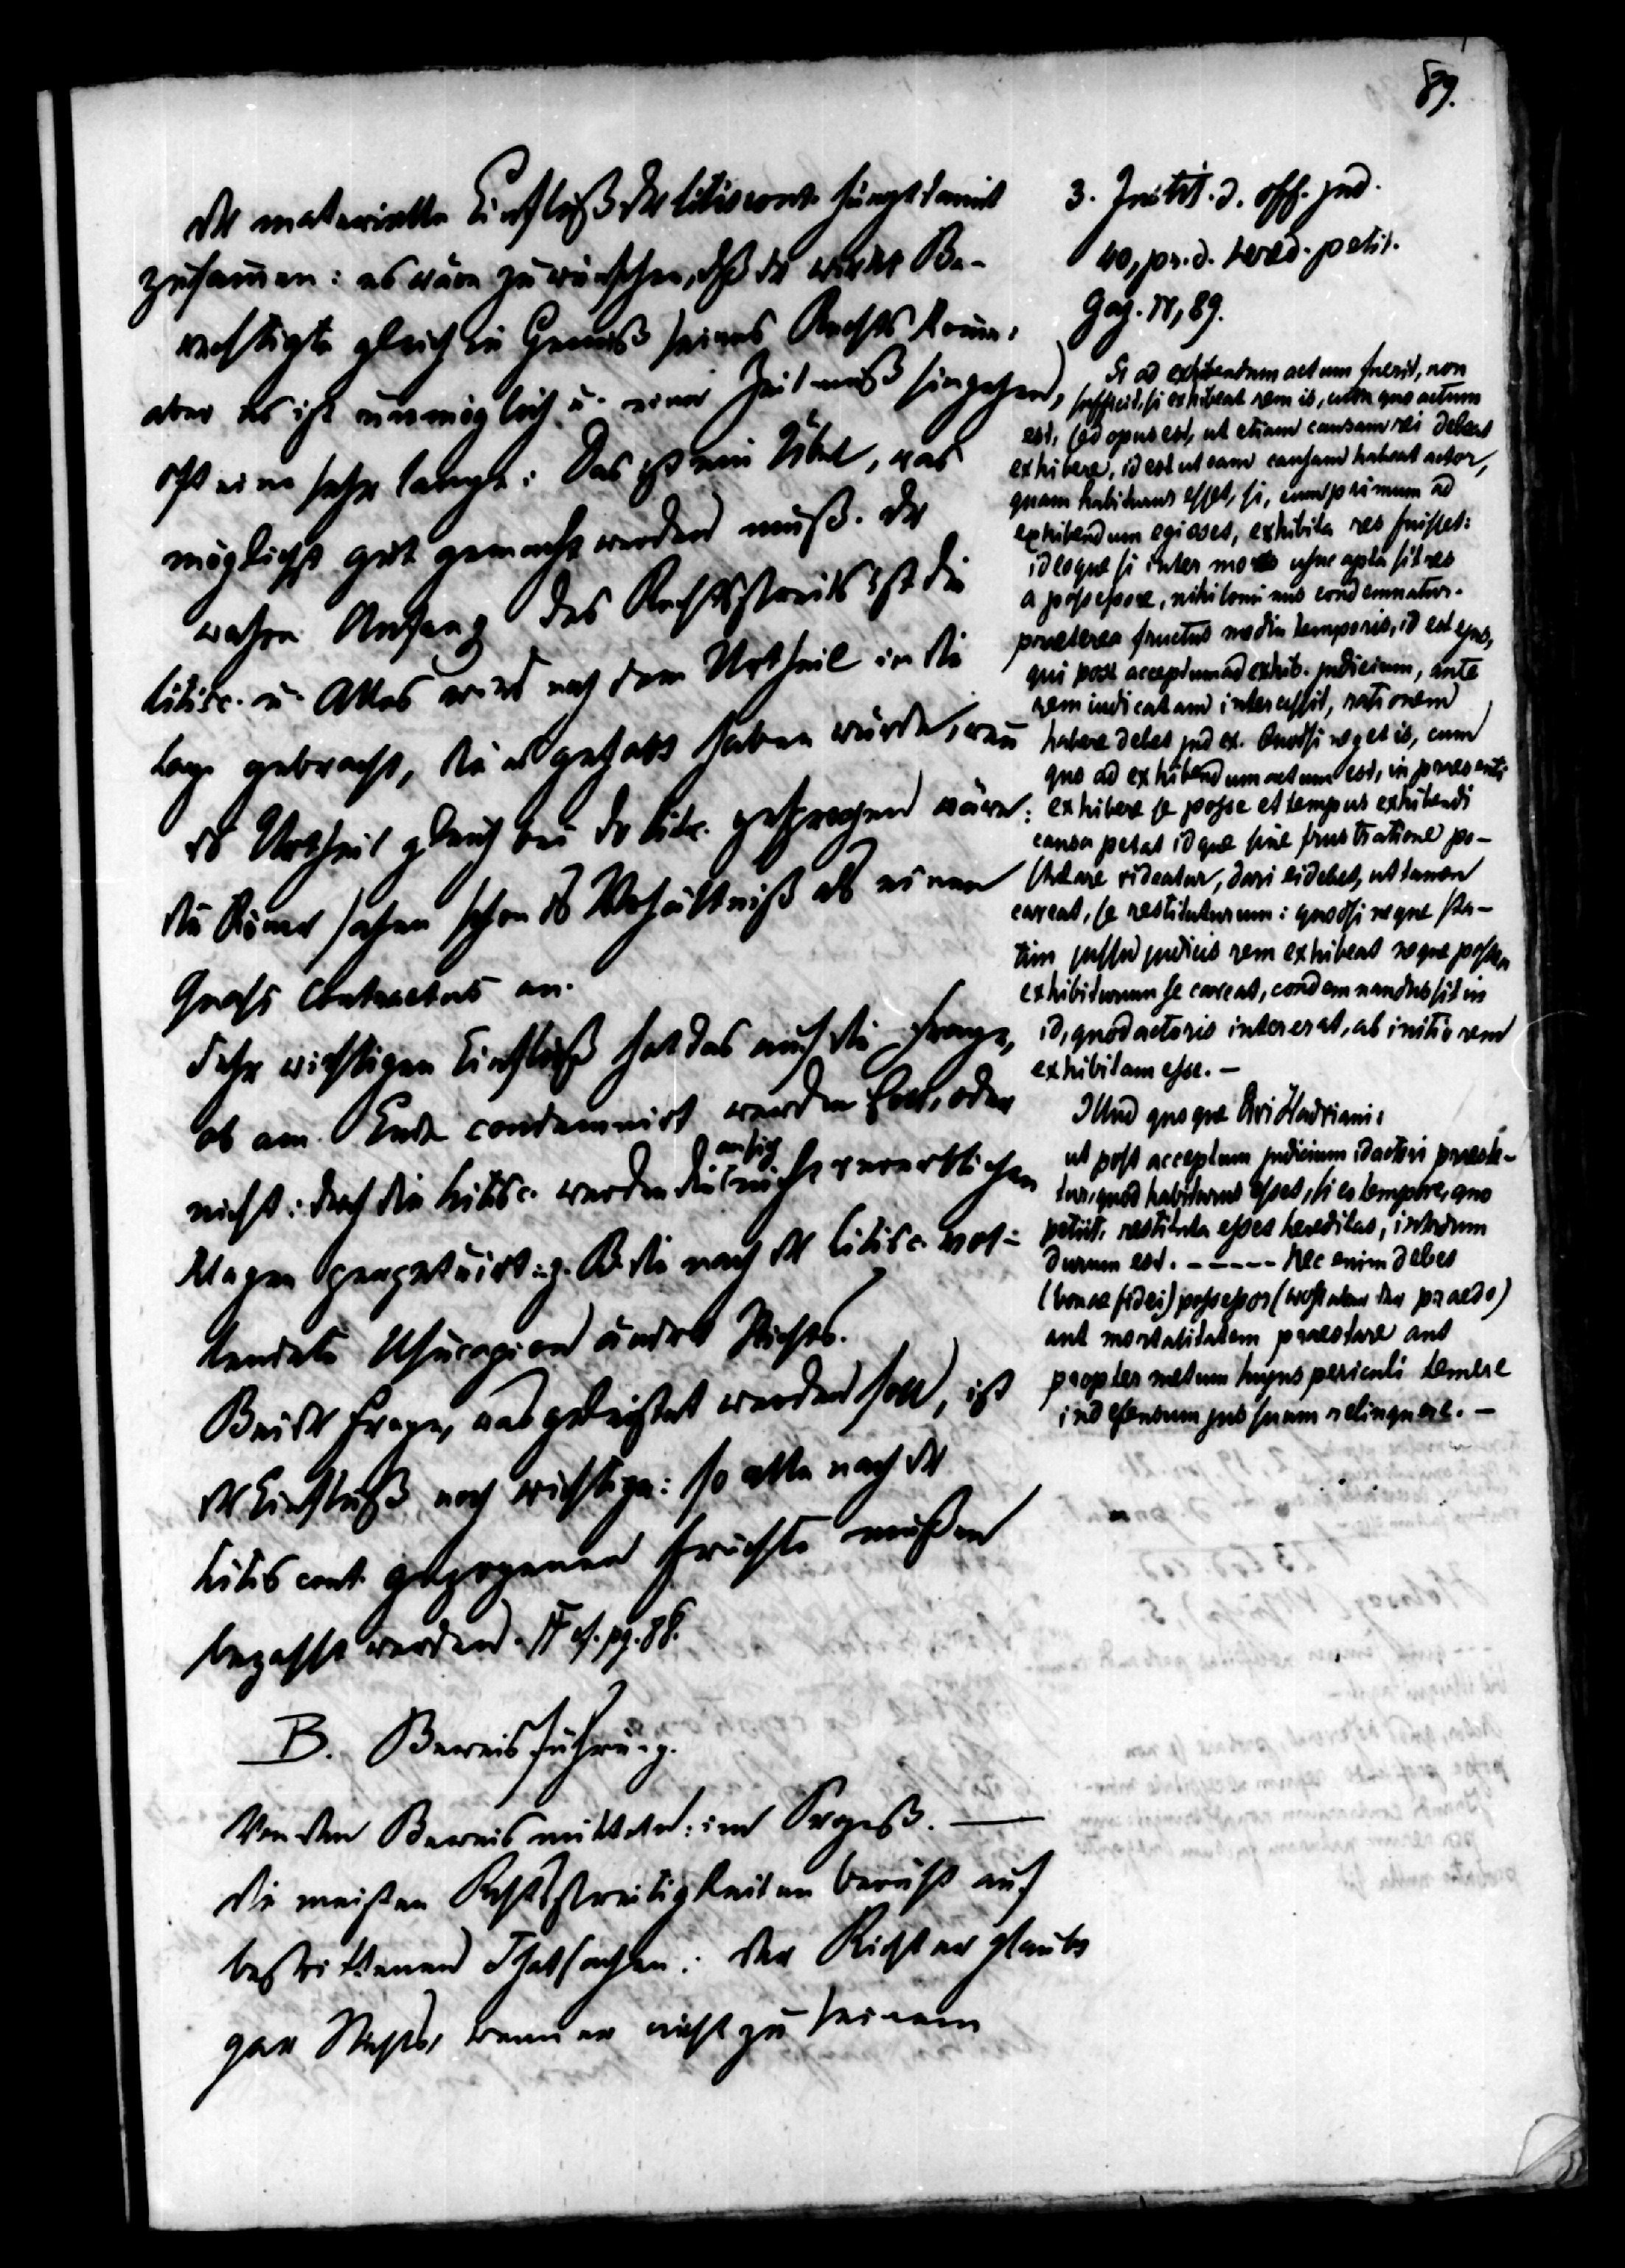 89.
Der materielle Einfluß der litiscont. hängt damit
zusammen: es wäre zu wünschen, dß der wirkl. Be-
rechtigte gleich in Genuß seines Rechts komme,
aber das ist unmöglich u. einer Zeit muß hingehen,
oft eine sehr lange: Das ist ein Übel, was
möglichst gut gemacht werden muß. Der
wahre Anfang des Rechtsstreits ist die
litisc. u. Alles wird nach dem Urtheil in die
Lage gebracht, die es gehabt haben würde, wenn
ds Urtheil gleich bei der litisc. gesprochen wäre:
die Römer sahen schon ds Verhältniß als einen
Quasi Contractus an.
Sehr wichtigen Einfluß hat das auf die Frage,
ob am Ende condemnirt werden soll, oder
nicht: durch die litisc. werden die an sich nicht vererblichen
Klagen perpetuirt: z. B. die nach der litisc. vol-
lendete Usucapion ändert Nichts.
Bei der Frage, was geleistet werden soll, ist
der Einfluß noch wichtiger: so alle nach der
litiscont. gezogenen Früchte müßen
bezahlt werden. cf. pg. 88.
B. Beweisführung.
Von den Beweismitteln: im Prozeß. —
Die meisten Rechtsstreitigkeiten beruht auf
bestrittenen Thatsachen: der Richter glaubt
gar Nichts, wenn er nicht zu seinem
3. Instit. d. off. jud.
40, pr. d. hered. petit.
Gaj. IV, 89.
Si ad exhibendum actum fuerit, non
sufficit, si exhibeat rem is, cum quo actum
est, sed opus est, ut etiam causam rei debeat
exhibere, id est ut eam causam habeat actor,
quam habiturus esset, si, cum primum ad
exhibendum egisset, exhibita res fuisset:
ideoque si inter moras usucapta sit res
a possessore, nihilominus condemnatur.
praeterea fructus medii temporis, id est ejus,
qui post acceptum ad exhib. judicium, ante
rem judicatam intercessit, rationem
habere debet judex. Quodsi neget is, cum
quo ad exhibendum actum est, in praesenti
exhibere se posse et tempus exhibendi
causa petat idque sine frustratione po-
stulare videatur, dari ei debet, ut tamen
caveat, se restituturum: quodsi neque sta-
tim jussu judicis rem exhibeat neque postea
exhibiturum se caveat, condemnandus sit in
id, quod actoris intererat, ab initio rem
exhibitam esse. —
Illud quoque Divi Hadriani:
ut post acceptum judicium id actori praeste-
tur, quod habiturus esset, si eo tempore, quo
petiit, restituta esset hereditas, interdum
durum est. ----- Nec enim debet
(bonae fidei) possessor (wohl aber der praedo)
aut mortalitatem praestare aut
propter metum hujus periculi temere
indefensum jus suum relinquere. —